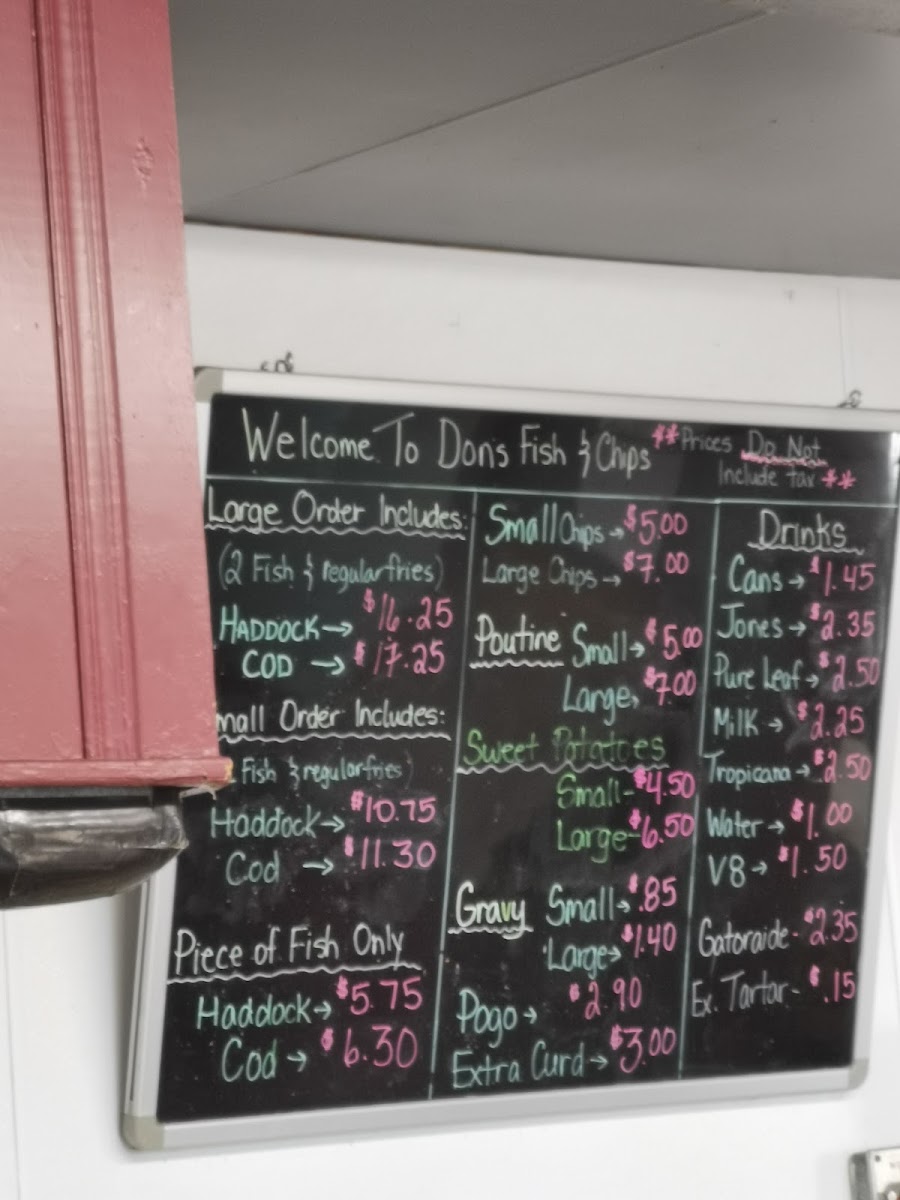 Welcome To Don's Fish & Chips
**Prices Do Not
Include tax **
Large Order Includes:
(2 Fish & regular fries)
HADDOCK→ $16.25
COD → $17.25
mall Order Includes:
Fish & regular fries)
Haddock→ $10.75
Cod → $11.30
Piece of Fish Only
Haddock→ $5.75
Cod → $6.30
Small Chips → $5.00
Large Chips → $7.00
Poutine Small→ $5.00
Large→ $7.00
Sweet Potatoes
Small- $4.50
Large- $6.50
Gravy Small→ $.85
Large→ $1.40
Pogo → $2.90
Extra Curd → $3.00
Drinks
Cans → $1.45
Jones → $2.35
Pure Leaf → $2.50
Milk → $2.25
Tropicana → $2.50
Water → $1.00
V8 → $1.50
Gatoraide - $2.35
Ex. Tartar - $.15